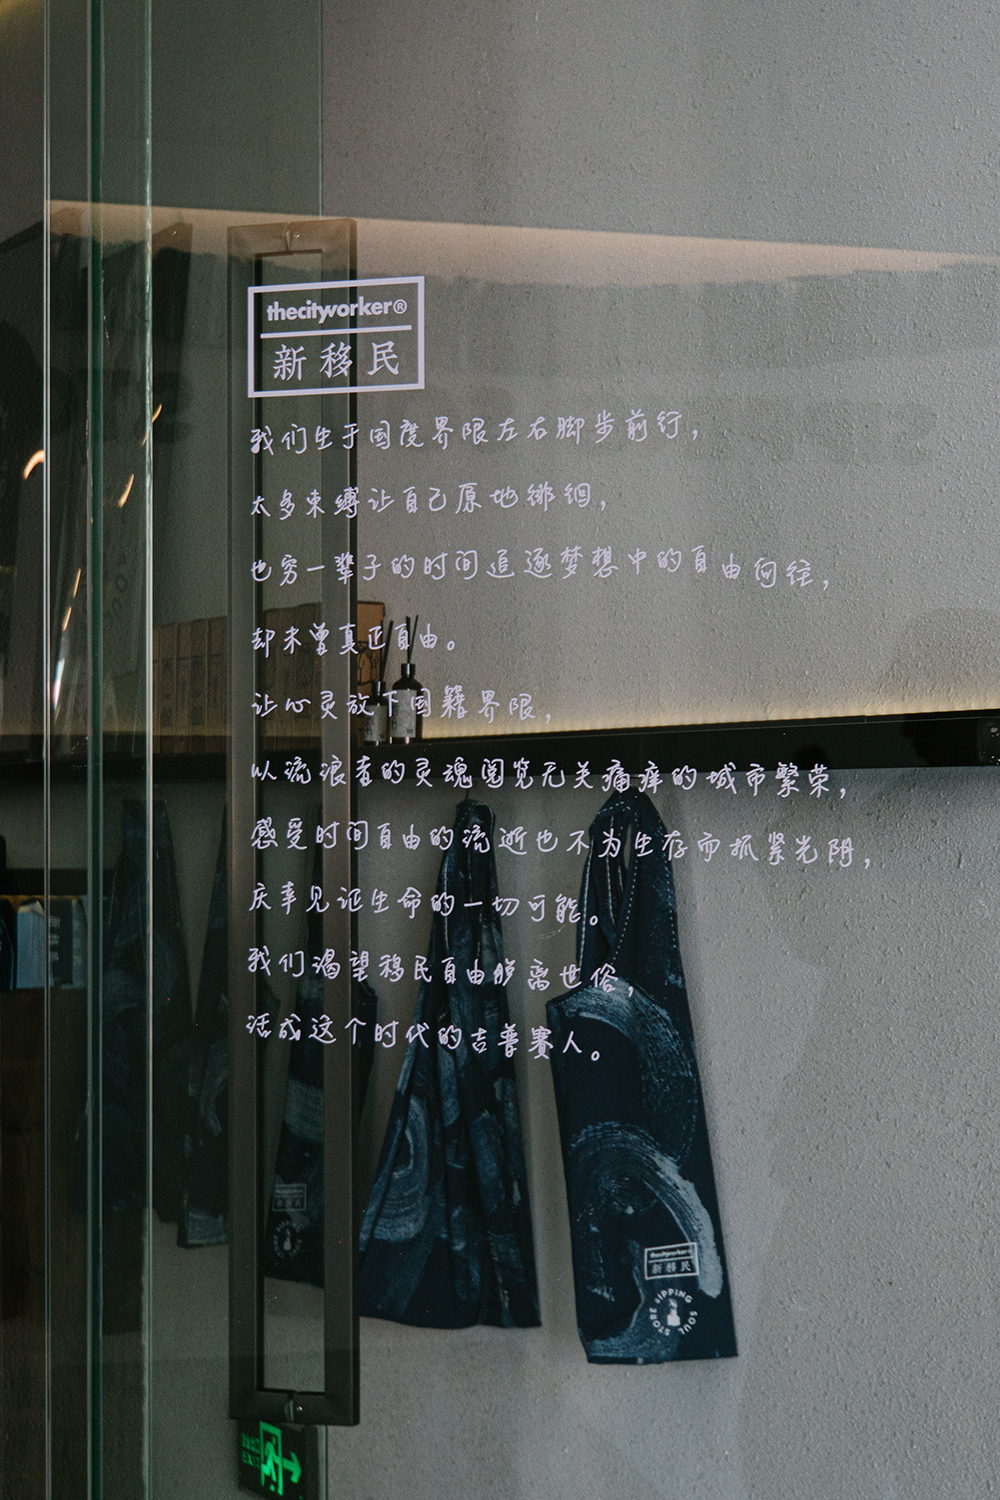 thecityworker®
新移民
我们生于国度界限左右脚步前行，
太多束缚让自己原地徘徊，
也穷一辈子的时间追逐梦想中的自由向往，
却未曾真正自由。
让心灵放下国籍界限，
以流浪者的灵魂阅览无关痛痒的城市繁荣，
感受时间自由的流逝也不为生存而抓紧光阴，
庆幸见证生命的一切可能。
我们渴望移民自由脱离世俗，
活成这个时代的吉普赛人。
thecityworker
新移民
SIPPING SOUL STORE
EXIT